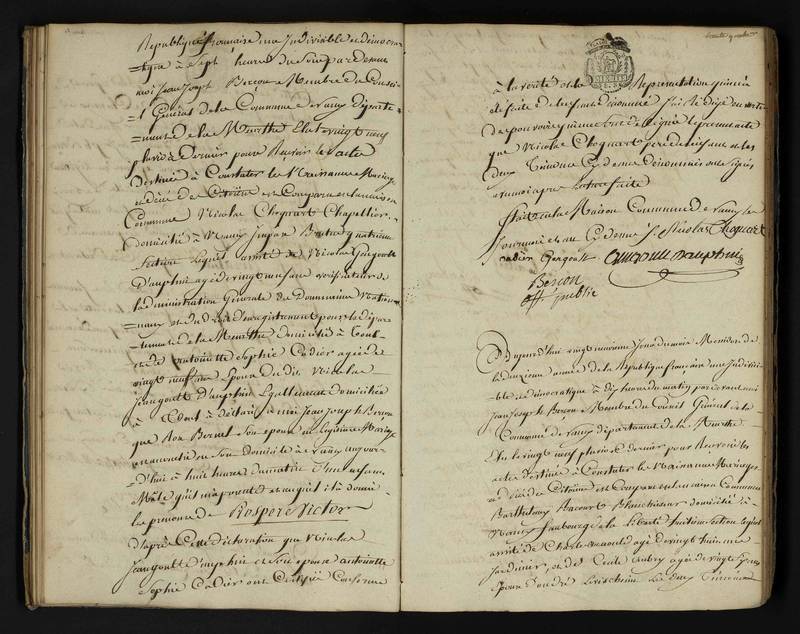 République française une Indivisible et démocra
-tique à Sept heures du Soir par devant
moi Jean Joseph Bercon Membre du Conseil
Général de la Commune de nancy Départe
-ment de la Meurthe Elu le vingt neuf
pluviose dernier pour Recevoir les actes
Destinés à Constater les Naissances Mariages
et décès des Citoïens est Comparu en la maison
Commune Nicolas Chopnart Chapellier
domicilié à Nancy
Section Lequel assisté de Nicolas Gengoult
Dauphin agé de vingt neuf ans vérificateur de
la administration Générale des Doummaine Nation
-naux et du droit d'enregistrement pour le dépar
-tement de la Meurthe domicilié à Toul
et de antoinette Sophie Cadier agée de
vingt neuf ans Epouse du dit Nicolas
Jeangoult Dauphin Egallement domiciliée
à Toul à déclaré à moi Jean Joseph Berson
que Son Epouse en Legitime Mariage
est accouchée en Son domicile à nancy aujour-
d'hui à huit heures du matin d'un enfant
Mâle qu'il m'a présenté et auquel il à donné
les prenoms de Prospere Victor
d'après Cette déclaration que Nicolas
Jeangoult dauphin et Son Epouse antoinette
Sophie Cadier ont Certifiée Conforme
à la vérité et la Représentation qui m'a
été faite de l'enfant dénommé J'ai Rédigé en vertu
des pouvoirs qui me sont délégués le présent acte
que Nicolas Chopnart père de l'enfant et les
deux Témoins Cy dessus dénommés ont signés
avec moi après Lecture faite
fait en la Maison Commune de nancy les
jour mois et an Cy dessus J. Nicolas Chopnart
cadier Gengoult dauphin
Bercon
off public
Aujourd'hui vingt unième Jour du mois Messidor de
la deuxieme année de la République française une Indivisi
-ble et démocratique à Dix heures du matin par devant moi
Jean Joseph Berson Membre du Conseil Général de la
Commune de nancy département de la Meurthe
Elu le vingt neuf pluviose dernier pour Recevoir les
actes destinés à Constater les Naissances Mariages
et décès des Citoïens est Comparu en la maison Commune
Barthelemy Bacourt Blanchisseur domicilié à
Nancy faubourg de la Liberté huitième Section Lequel
assisté de Charles agé de vingt huit ans
Jardinier, et de Cecile Aubry agée de vingt
Epouse d'andré les deux Témoins